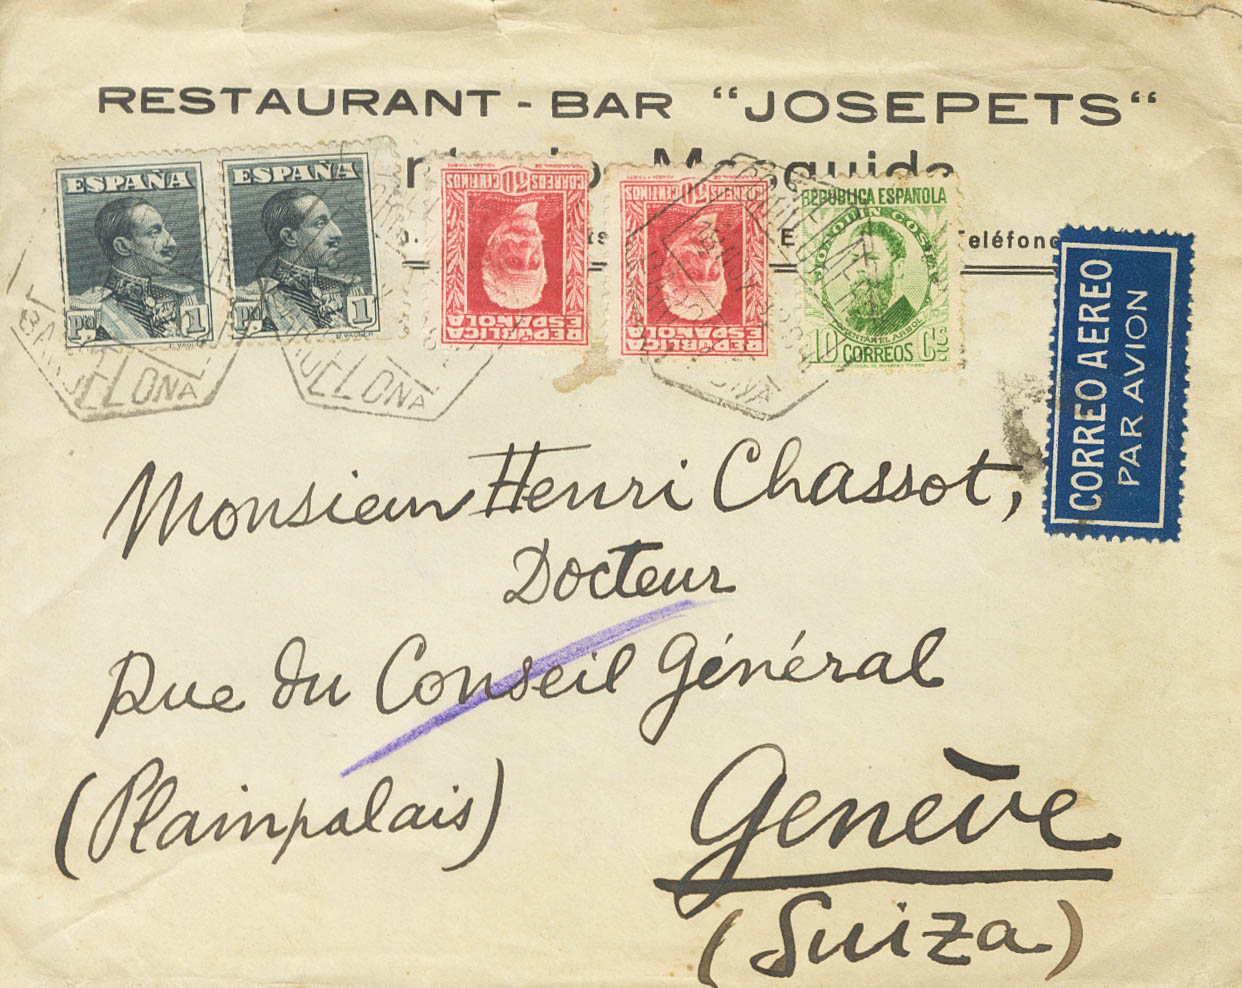 RESTAURANT - BAR “JOSEPETS“
Mosquida
Teléfono
ESPAÑA
1
ESPAÑA
Pta 1
CORREOS 50 CENTIMOS
REPÚBLICA ESPAÑOLA
REPÚBLICA ESPAÑOLA
REPÚBLICA ESPAÑOLA
JOAQUIN COSTA
10 CORREOS Cs
BARCELONA
BARCELONA
CORREO AEREO
PAR AVION
Monsieur Henri Chassot,
Docteur
Rue du Conseil Général
(Plainpalais)
Genève
(Suiza)